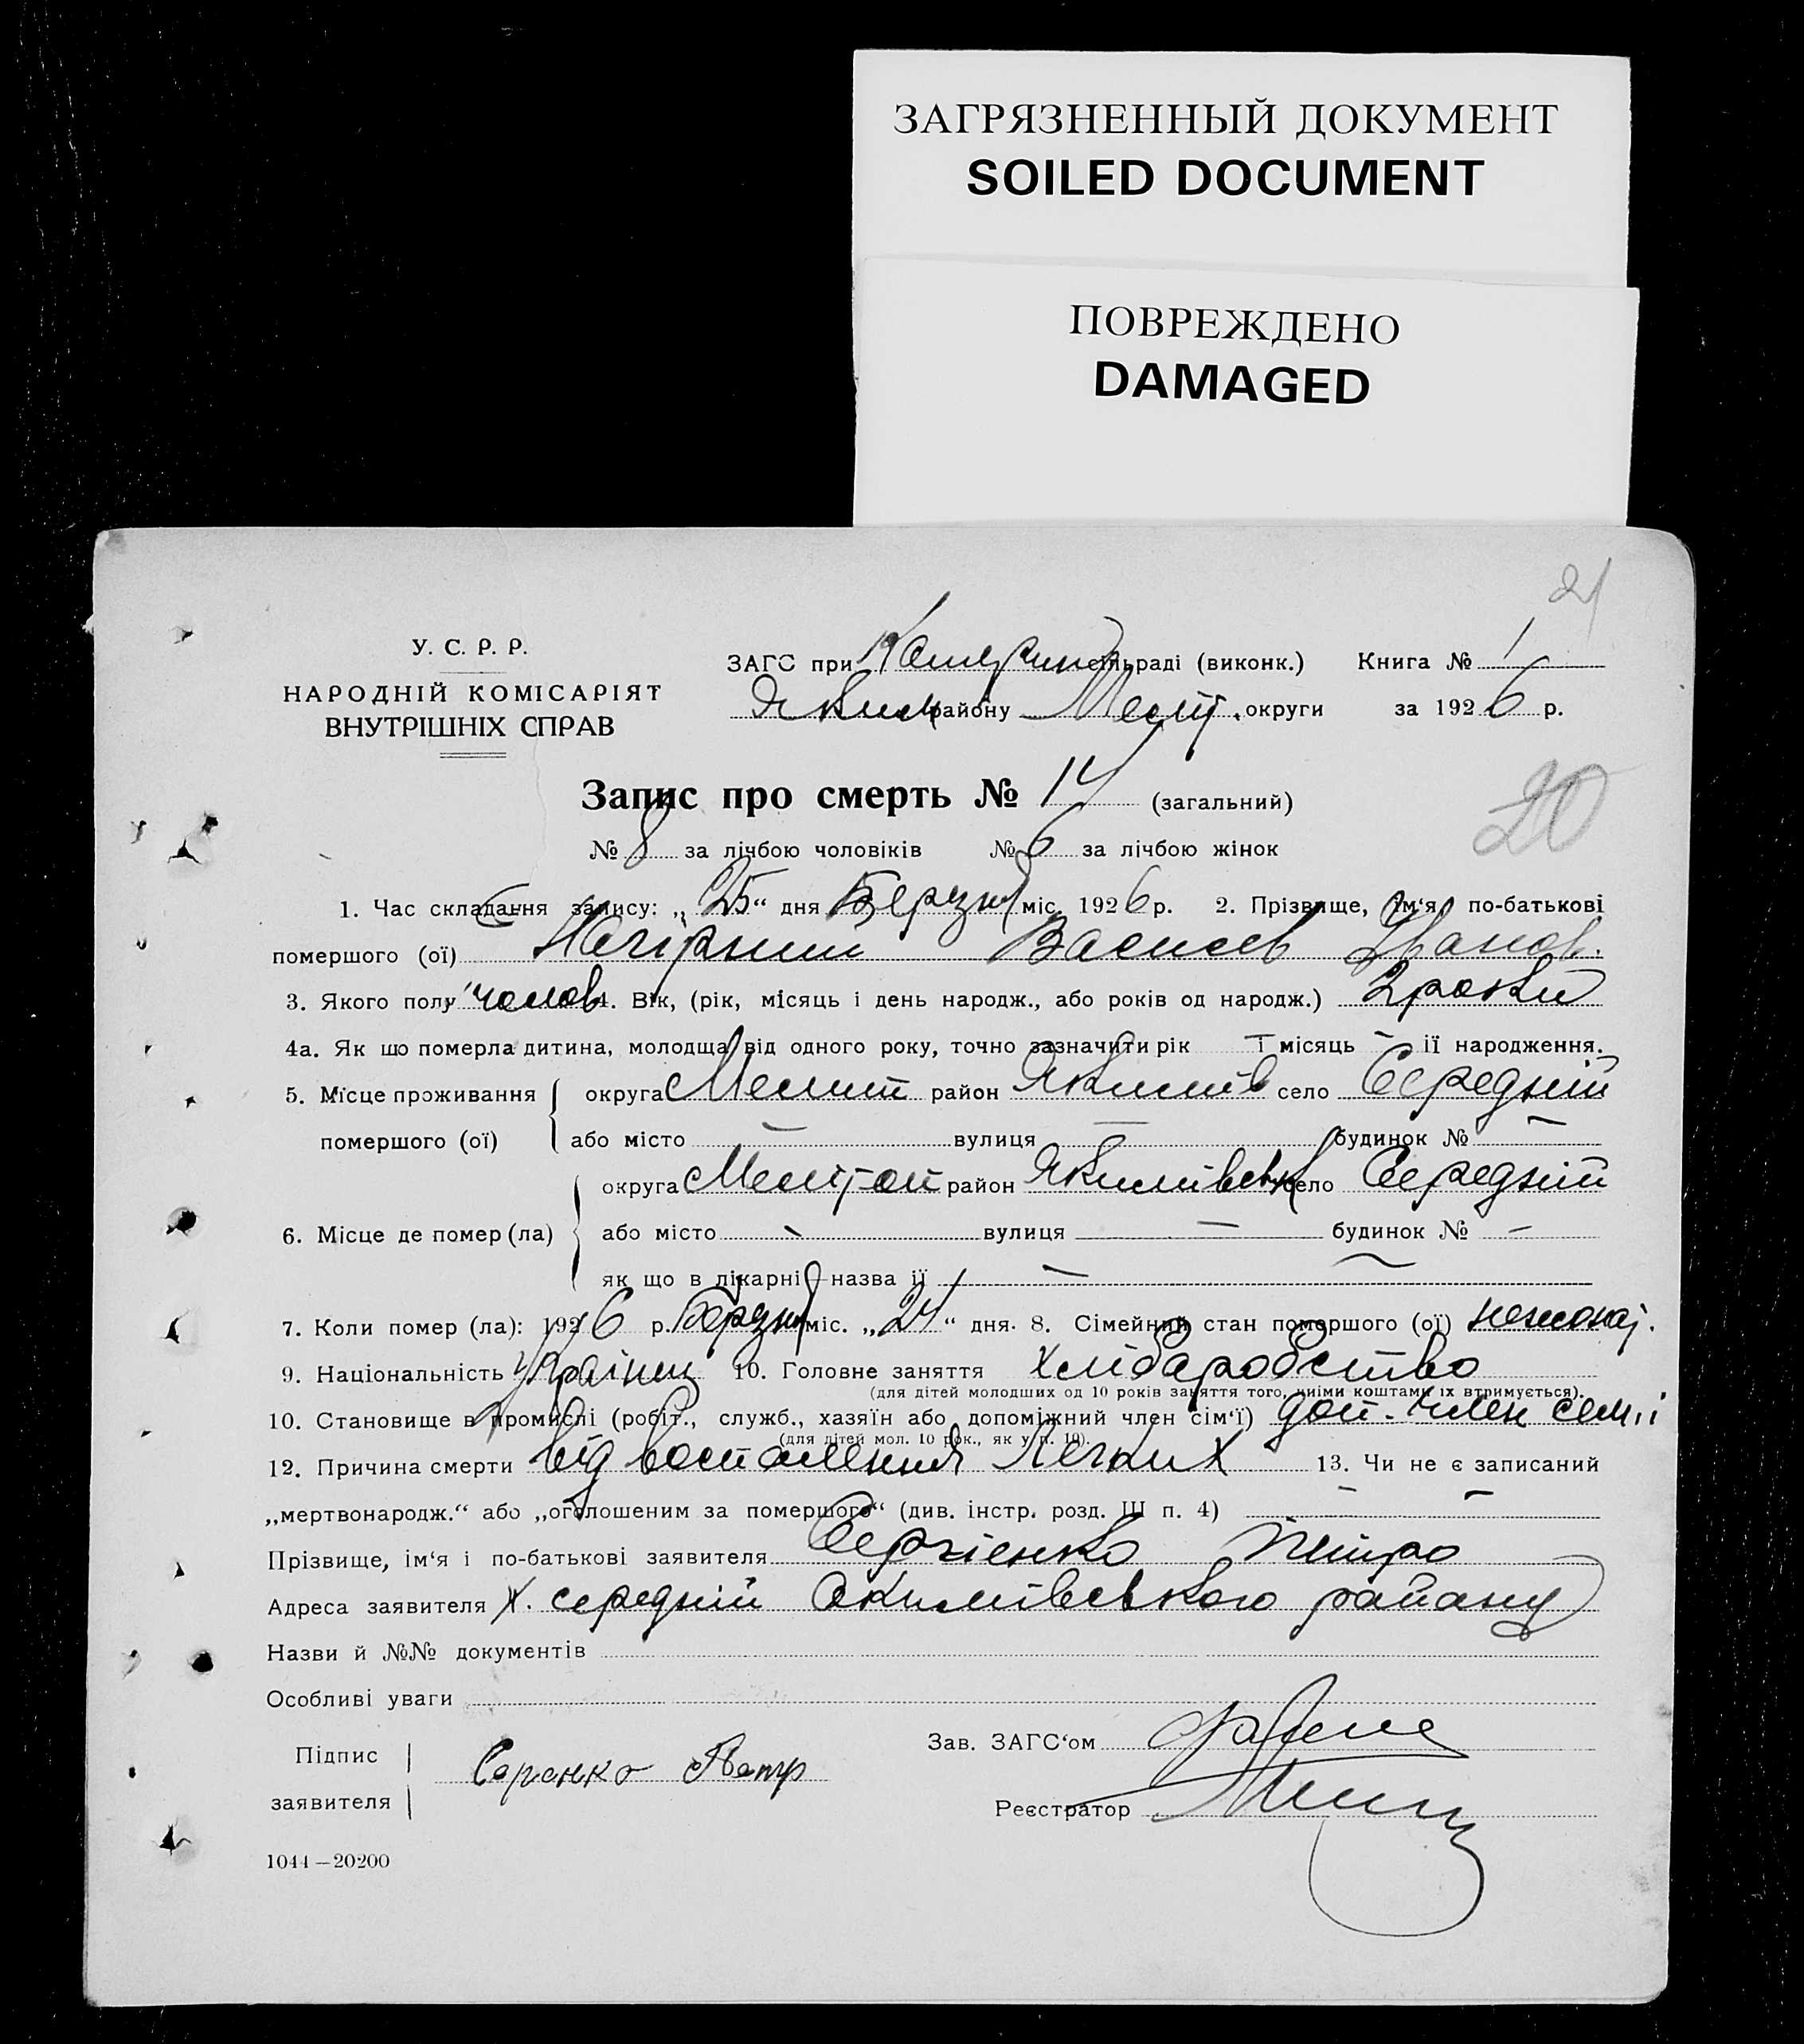 ЗАГРЯЗНЕННЫЙ ДОКУМЕНТ
SOILED DOCUMENT
ПОВРЕЖДЕНО
DAMAGED
21
У. С. Р. Р.
НАРОДНІЙ КОМІСАРІЯТ
ВНУТРІШНІХ СПРАВ
ЗАГС при сільраді (виконк.) Книга № 1
Яким району Меліт. округи за 1926 р.
Запис про смерть № 14 (загальний)
20
№ 8 за лічбою чоловіків № 6 за лічбою жінок
1. Час складання запису: „25“ дня Березня міс. 1926 р. 2. Прізвище, ім‘я, по-батькові
помершого (ої) Нагірний Василь Іванов.
3. Якого полу чолов 4. Вік, (рік, місяць і день народж., або років од народж.) 2 роки
4а. Як що померла дитина, молодща від одного року, точно зазначити рік — місяць — ії народження.
5. Місце проживання округа Мелит район Якимів село Середній
помершого (ої) або місто — вулиця — будинок № —
округа Мелітоп район Якимівськ село Середній
6. Місце де помер (ла) або місто — вулиця — будинок № —
як що в лікарні—назва ії —
7. Коли помер (ла): 1926 р. Березня міс. „24“ дня. 8. Сімейний стан помершого (ої) нежонат.
9. Національність Українец 10. Головне заняття хліборобство
(для дітей молодших од 10 років заняття того, чиіми коштами іх втримується).
10. Становище в промислі (робіт., служб., хазяїн або допоміжний член сім‘ї) доп. член семії
(для дітей мол. 10 рок., як у п. 10).
12. Причина смерти від воспаления Легких 13. Чи не є записаний
„мертвонародж.“ або „оголошеним за помершого“ (див. інстр. розд. III п. 4) — —
Прізвище, ім‘я і по-батькові заявителя Сергієнко Петро
Адреса заявителя х. середній Якимівського району
Назви й №№ документів
Особливі уваги
Підпис
заявителя
Зав. ЗАГС‘ом
Реєстратор
1044—20200